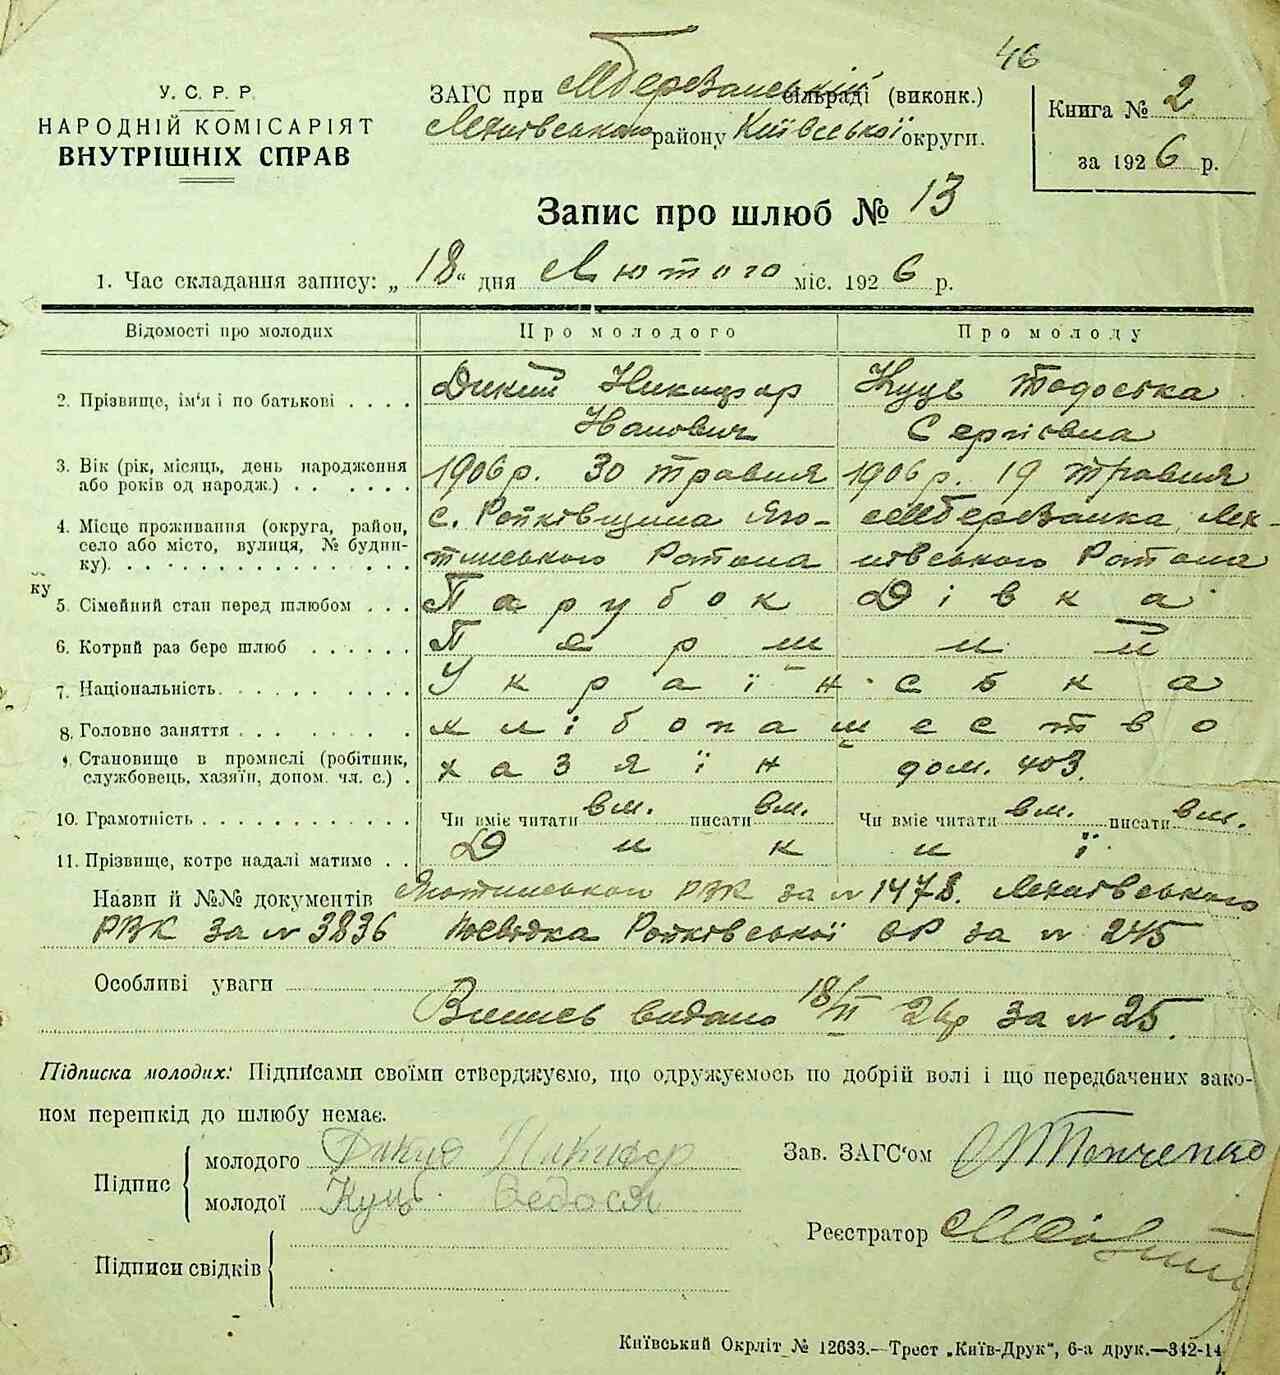 46
У.С.Р.Р.
НАРОДНІЙ КОМІСАРІЯТ
ВНУТРІШНІХ СПРАВ
ЗАГС при МБерезанській сільраді (виконк.)
району Київської округи.
Книга № 2
за 1926 р.
Запис про шлюб № 13
1. Час складання запису: „18“ дня Лютого міс. 1926 р.
Відомості про молодих Про молодого Про молоду
2. Прізвище, ім'я і по батькові . . . . Дикий Никифор Куць Тодоська
Іванович Сергіївна
3. Вік (рік, місяць, день народження 1906 р. 30 травня 1906 р. 19 травня
або років од народж.) . . . . . .
4. Місце проживання (округа, район, с. Райківщина Яго- МБерезанка,
село або місто, вулиця, № будин- тинського Района Района
ку). . . . . . . . . . . . . . .
ку
5. Сімейний стан перед шлюбом . . . Парубок Дівка
6. Котрий раз бере шлюб . . . . . . Перший
7. Національність. . . . . . . . . . Українська
8. Головно заняття . . . . . . . . . хлібопашество
9. Становище в промислі (робітник, хазяїн дом. хоз.
службовець, хазяїн, допом. чл. с.) .
10. Грамотність . . . . . . . . . . . . Чи вміє читати вм. писати вм. Чи вміє читати вм. писати вм.
11. Прізвище, котре надалі матиме . . Дикиї
Назви й №№ документів Яготинського РВК за № 1478.
РВК за № 3836 Посвідка Райківської СР за № 245
Особливі уваги
Випись видано 18/II 26р за № 25.
Підписка молодих: Підписами своїми стверджуємо, що одружуємось по добрій волі і що передбачених зако-
ном перешкід до шлюбу немає.
Підпис
молодого Никифор
молодої Куць Федося
Зав. ЗАГС'ом
Реєстратор
Підписи свідків
Київський Окрліт № 12633.—Трест „Київ-Друк“, 6-а друк.—342-14